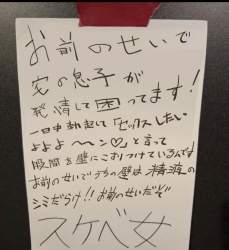 お前のせいで
家の息子が
発情して困ってます!
一日中勃起して「セックスしたい
よよよ〜〜ン♡」と言って
股間を壁にこすりつけているんです
お前のせいでウチの壁は精液の
シミだらけ!!お前のせいだぞ
スケベ女